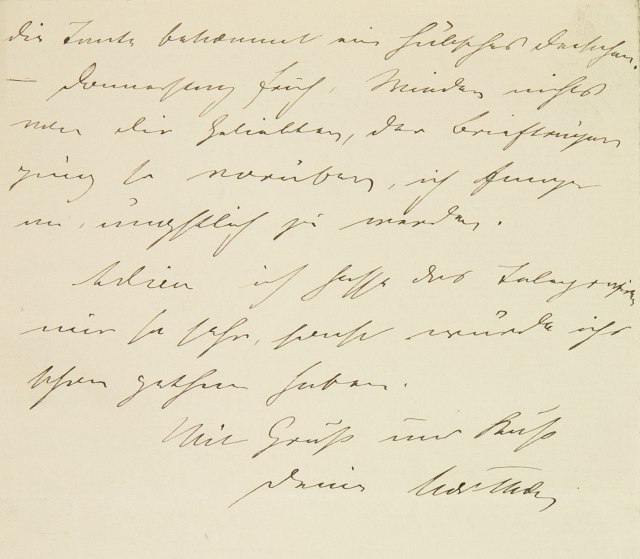 die Tante bekommt ein hübsches
— Donnerstag früh. Wieder nichts
von dir Geliebten, der Briefträger
ging so vorüber, ich fange
an, ängstlich zu werden.
Adieu ich hasse das Telegraphieren
mir so sehr, sonst würde ich's
schon gethan haben.
Mit Gruß und Kuß
deine